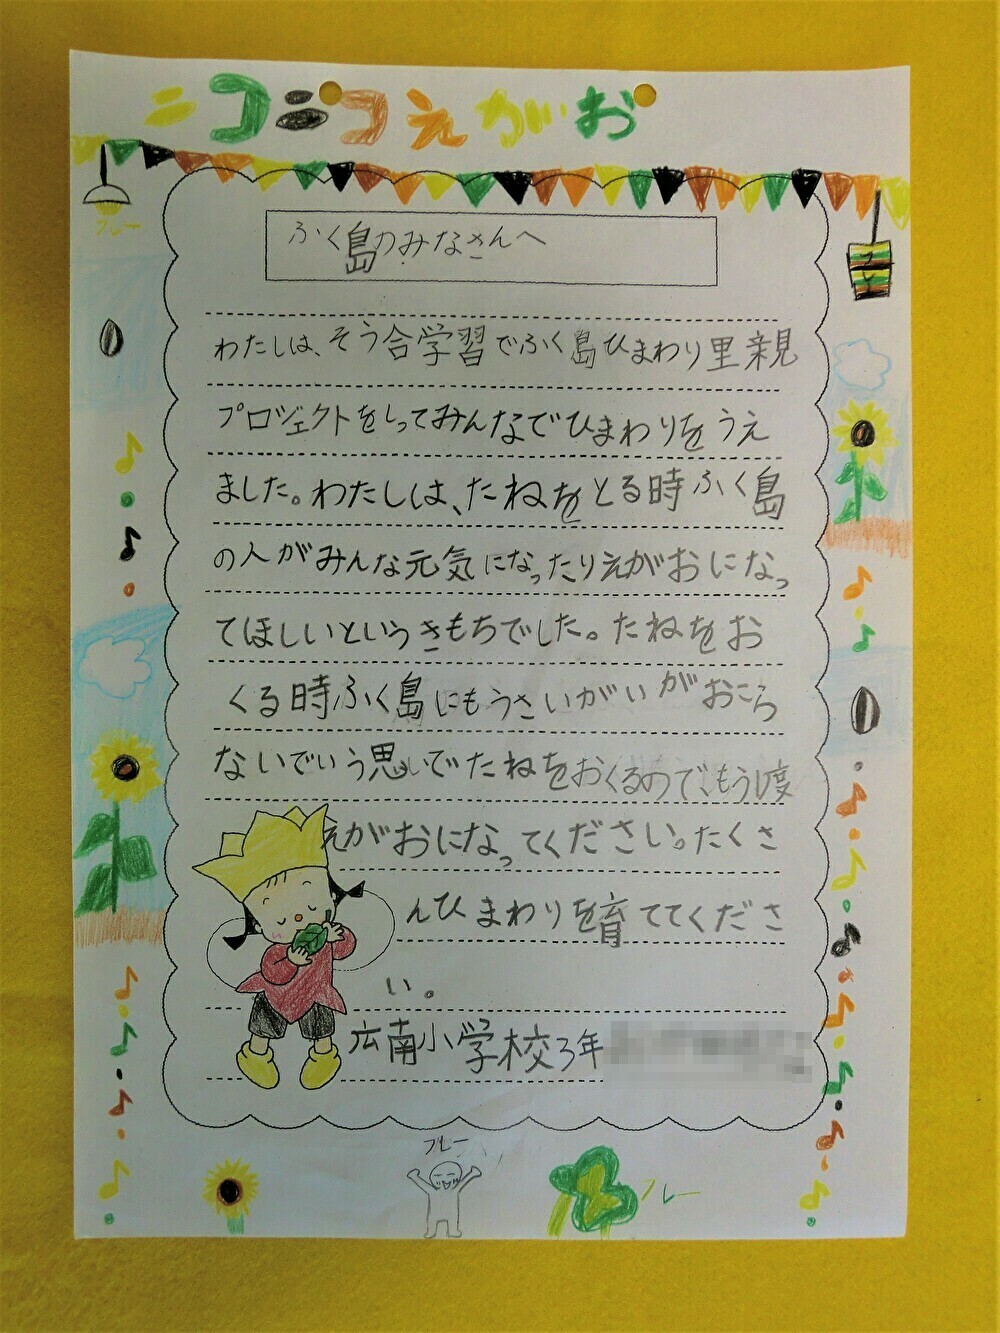 ニコニコえがお
フレー
フレー
ふく島のみなさんへ
わたしは、そう合学習でふく島ひまわり里親
プロジェクトをしってみんなでひまわりをうえ
ました。わたしは、たねをとる時ふく島
の人がみんな元気になったりえがおになっ
てほしいというきもちでした。たねをお
くる時ふく島にもうさいがいがおこら
ないでいう思いでたねをおくるので、もう1度
えがおになってください。たくさ
んひまわりを育ててくださ
い。
広南小学校3年
フレー
フレー